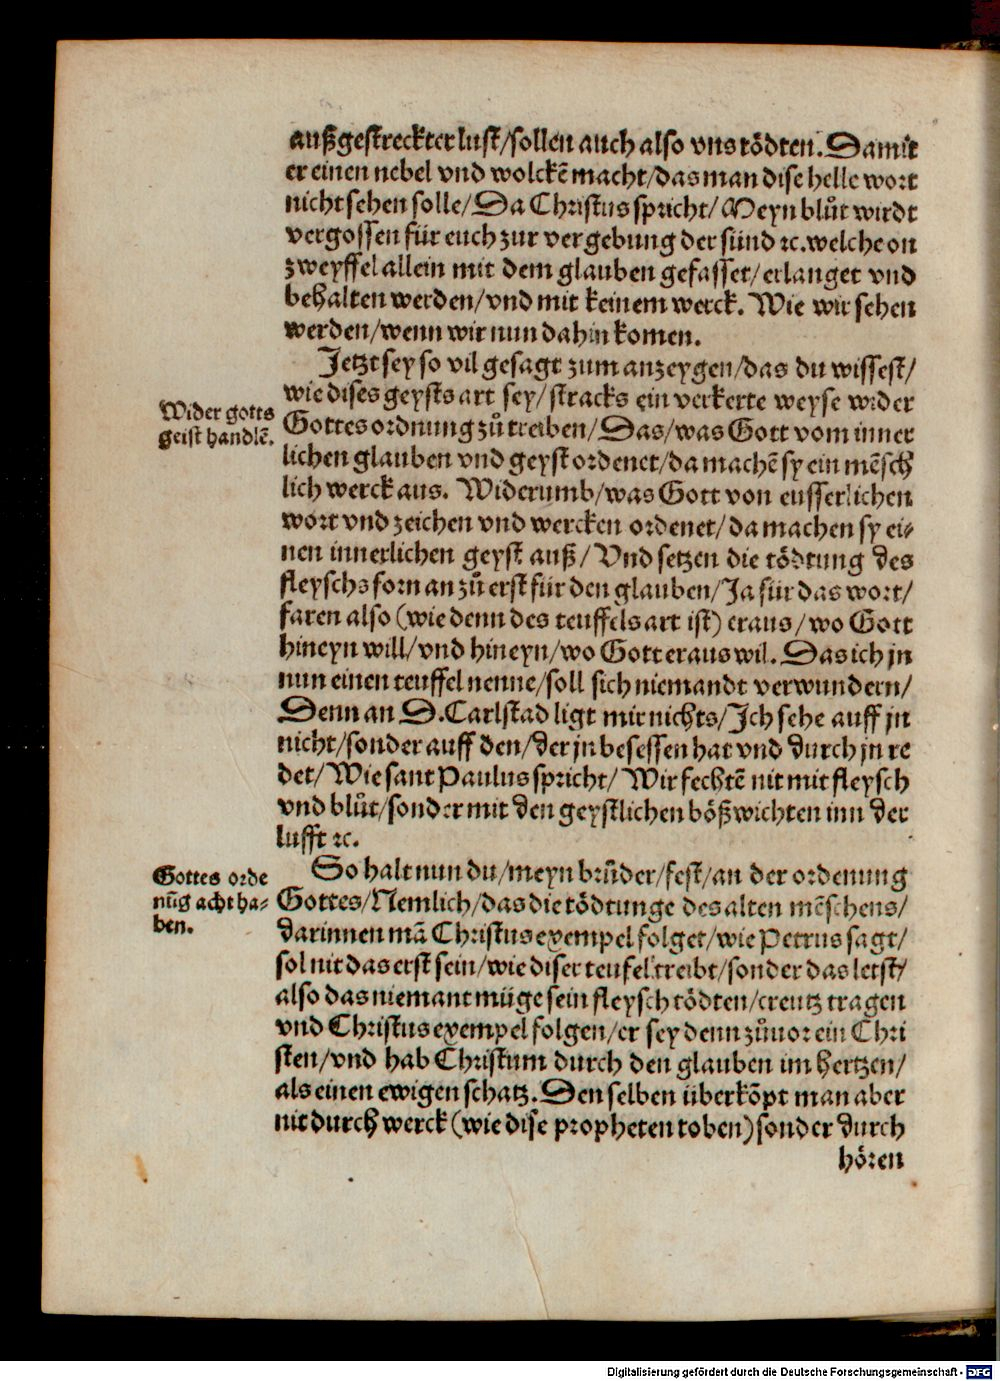 außgestreckter lust/sollen auch also vns tödten. Damit
er einen nebel vnd wolckē macht/das man dise helle wort
nicht sehen solle/Da Christus spricht/Meyn blůt wirdt
vergossen für euch zur vergebung der sünd ꝛc. welche on
zweyffel allein mit dem glauben gefasset/erlanget vnd
behalten werden/vnd mit keinem werck. Wie wir sehen
werden/wenn wir nun dahin komen.
Jetzt sey so vil gesagt zum anzeygen/das du wissest/
wie dises geysts art sey/stracks ein verkerte weyse wider
Wider gotts
geist handlē.
Gottes ordnung zů treiben/Das/was Gott vom inner
lichen glauben vnd geyst ordenet/da machē sy ein mēsch
lich werck aus. Widerumb/was Gott von eusserlichen
wort vnd zeichen vnd wercken ordenet/da machen sy ei-
nen innerlichen geyst auß/Vnd setzen die tödtung des
fleyschs forn an zů erst für den glauben/Ja für das wort/
faren also (wie denn des teuffels art ist) eraus/wo Gott
hineyn will/vnd hineyn/wo Gott eraus wil. Das ich jn
nun einen teuffel nenne/soll sich niemandt verwundern/
Denn an D. Carlstad ligt mir nichts/Ich sehe auff jn
nicht/sonder auff den/der jn besessen hat vnd durch jn re
det/Wie sant Paulus spricht/Wir fechtē nit mit fleysch
vnd blůt/sonder mit den geystlichen bößwichten inn der
lufft ꝛc.
So halt nun du/meyn brůder/fest/an der ordenung
Gottes orde
nūg acht ha-
ben.
Gottes/Nemlich/das die tödtunge des alten mēschens/
darinnen mā Christus exempel folget/wie Petrus sagt/
sol nit das erst sein/wie diser teufel treibt/sonder das letst/
also das niemant müge sein fleysch tödten/creutz tragen
vnd Christus exempel folgen/er sey denn zůuor ein Chri
sten/vnd hab Christum durch den glauben im hertzen/
als einen ewigen schatz. Den selben überkōpt man aber
nit durch werck (wie dise propheten toben) sonder durch
hören
Digitalisierung gefördert durch die Deutsche Forschungsgemeinschaft - DFG